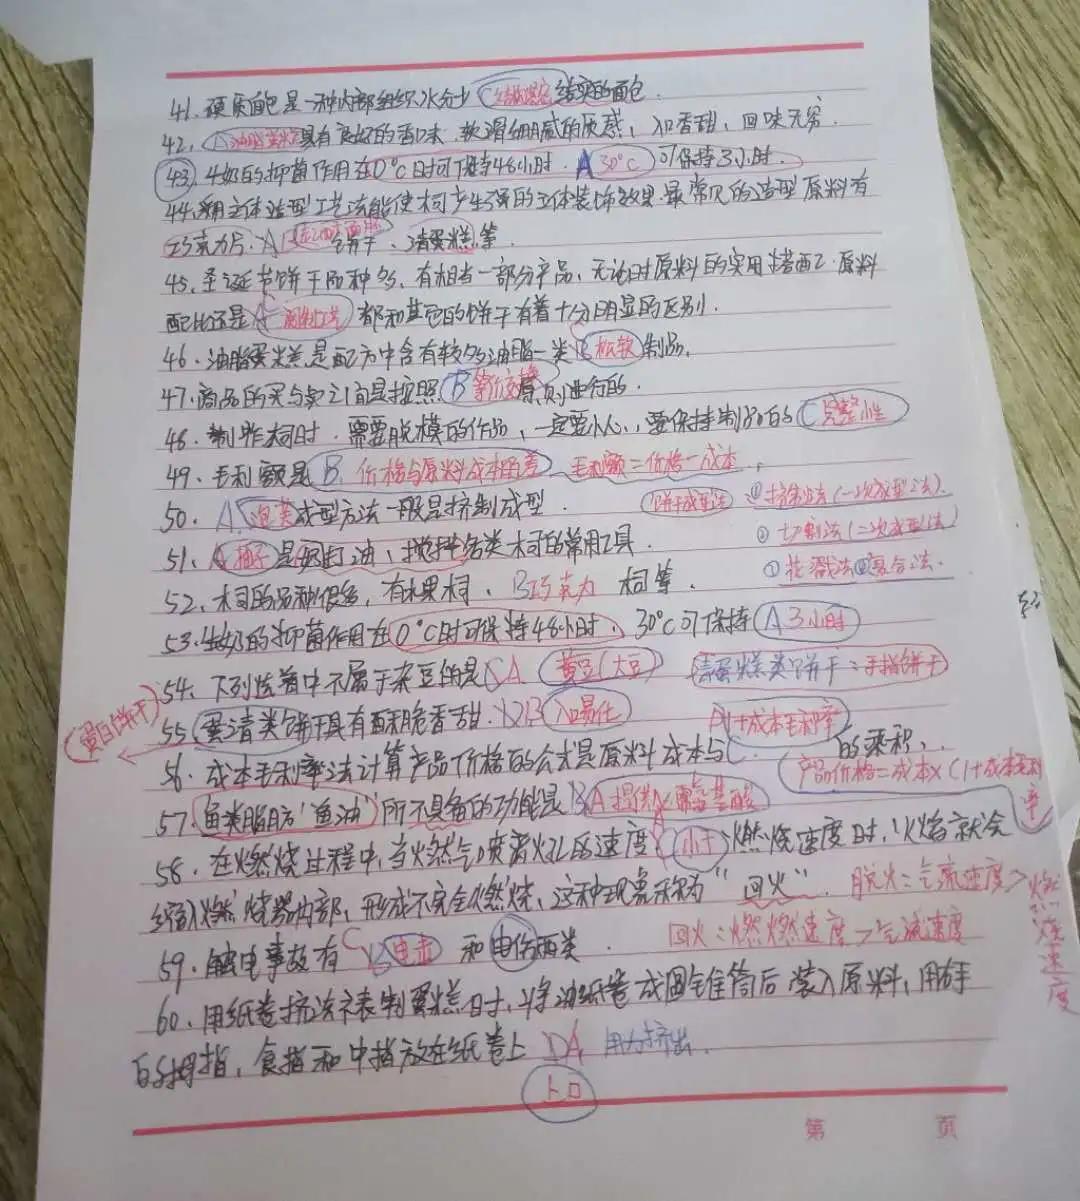 41. 硬质面包是一种内部组织水分少 C 结构紧密 结实的面包.
42. A 油脂蛋糕 具有良好的香味, 软滑细腻的质感, 入口香甜, 回味无穷.
43. 牛奶的抑菌作用在0°C时可保持48小时. A 30°C 可保持3小时.
44. 用立体造型工艺法能使柯产生强的立体装饰效果. 最常见的造型原料有
巧克力片. A 饼干、清蛋糕等.
45. 圣诞节饼干品种多, 有相当一部分产品, 无论时原料的实用搭配. 原料
配比还是 A 都和其它的饼干有着十分明显的区别.
46. 油脂蛋糕是配方中含有较多油脂一类 松软 制品.
47. 商品的买与卖之间是按照 B 等价交换 原则进行的.
48. 制作柯时. 需要脱模的作品, 一定要小心, 要保持制品的 C 完整性
49. 毛利额是 B. 价格与原料成本的差 毛利额=价格-成本.
50. A. 泡芙 成型方法一般是挤制成型. 饼干成型法 ①挤制法(一次成型法).
51. A 抽子 是奶打油、搅拌各类柯的常用工具. ②切割法(二次成型法)
52. 柯的品种很多, 有水果柯、B巧克力 柯等. ③花戳法④复合法.
53. 牛奶的抑菌作用在0°C时可保持48小时, 30°C可保持 A 3小时
54. 下列淀着中不属于杂豆的是 C A 黄豆(大豆) 清蛋糕类饼干=手指饼干
(蛋白饼干)
55 蛋清类饼干具有酥脆香甜. D B 入口易化 A 1+成本毛利率
56. 成本毛利率法计算产品价格的公式是原料成本与 C 的乘积.
产品价格=成本×(1+成本毛利率
57. 鱼类脂肪“鱼油”所不具备的功能是 B A 提供必需氨基酸
58. 在燃烧过程中, 当燃气喷离火孔的速度 小于 燃烧速度时, 火焰就会
缩入燃烧器内部, 形成不完全燃烧, 这种现象称为“回火”. 脱火:气流速度>燃烧速度
59. 触电事故有 C B 电击 和电伤两类. 回火:燃燃速度>气流速度
60. 用纸卷挤法裱制蛋糕时, 将油纸卷成圆锥筒后 装入原料, 用右手
的拇指, 食指和中指放在纸卷上 D A. 用力挤出.
上口
第 页